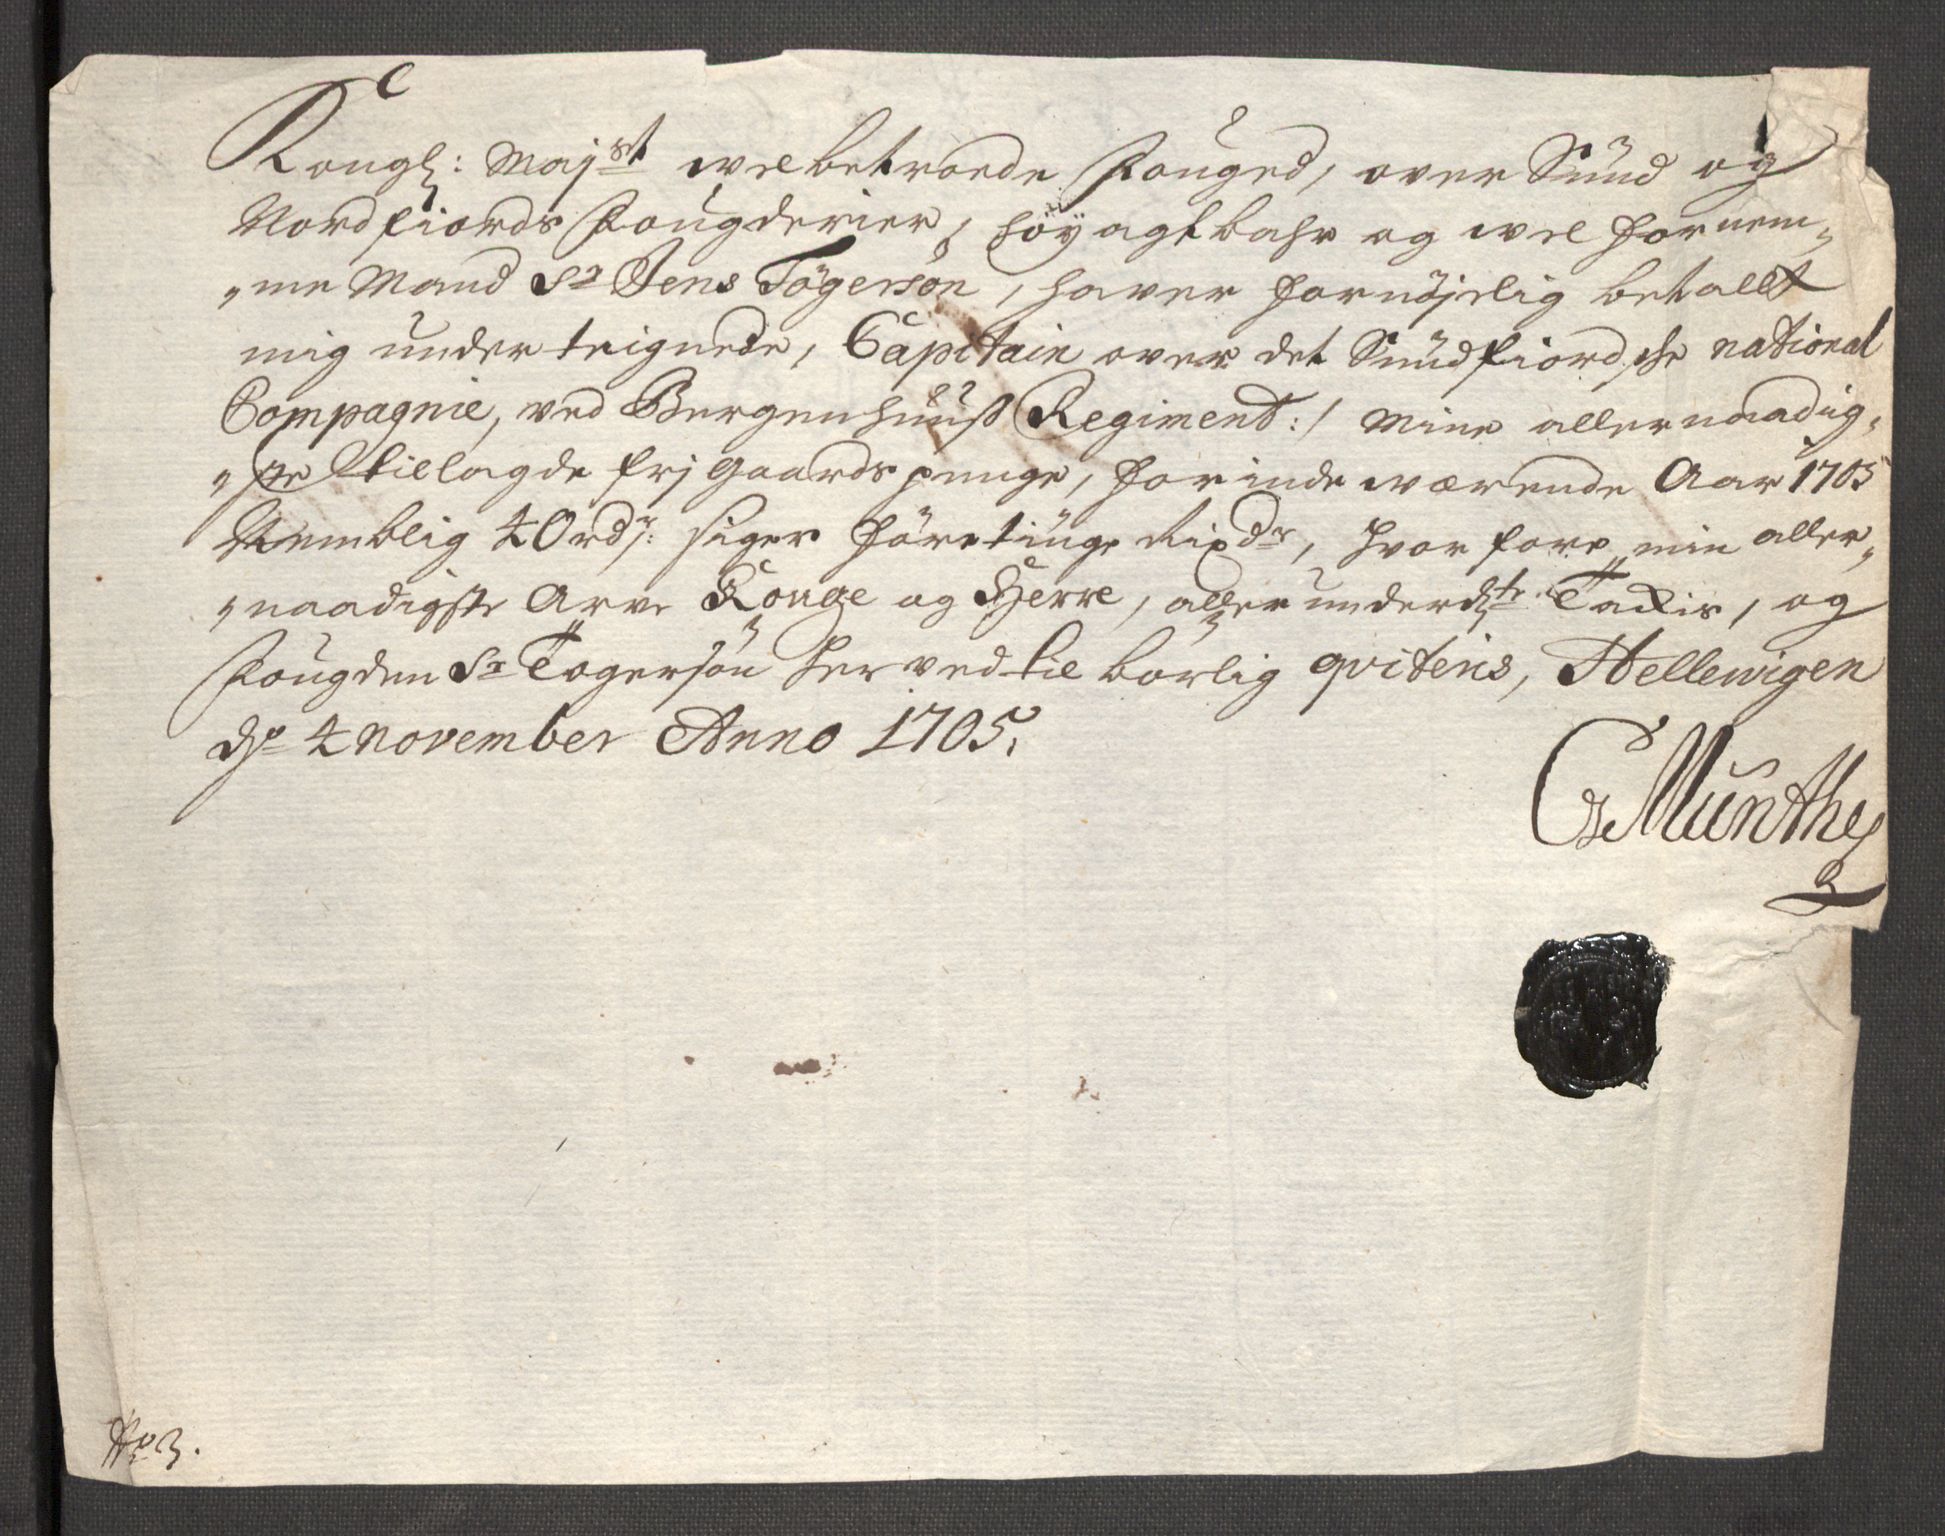 Kongl: Maj.st welbetroede Fouged, over Sund og
Nordfiords Fougderier, höyagtbahr og wel fornem„
„me Mand Sr Jens Tögersön, haver fornöjelig betallt
mig underteignede, Capitain over det Sundfiordsche national
Compagnie, ved Bergenhuuss Regiment:/ Mine allernaadig„
„ste tillagde frj gaards penge, for indewærende Aar 1705
Nemblig 40 rdr: siger Företiuge Rixdr, hvor fore min aller„
„naadigste Arve Konge og Herre, allerunderdste Tackis, og
Fougden Sr Togersön herved til börlig qvitens, Hellewigen
dn 4 november Anno 1705.
G Munthe
No 3.